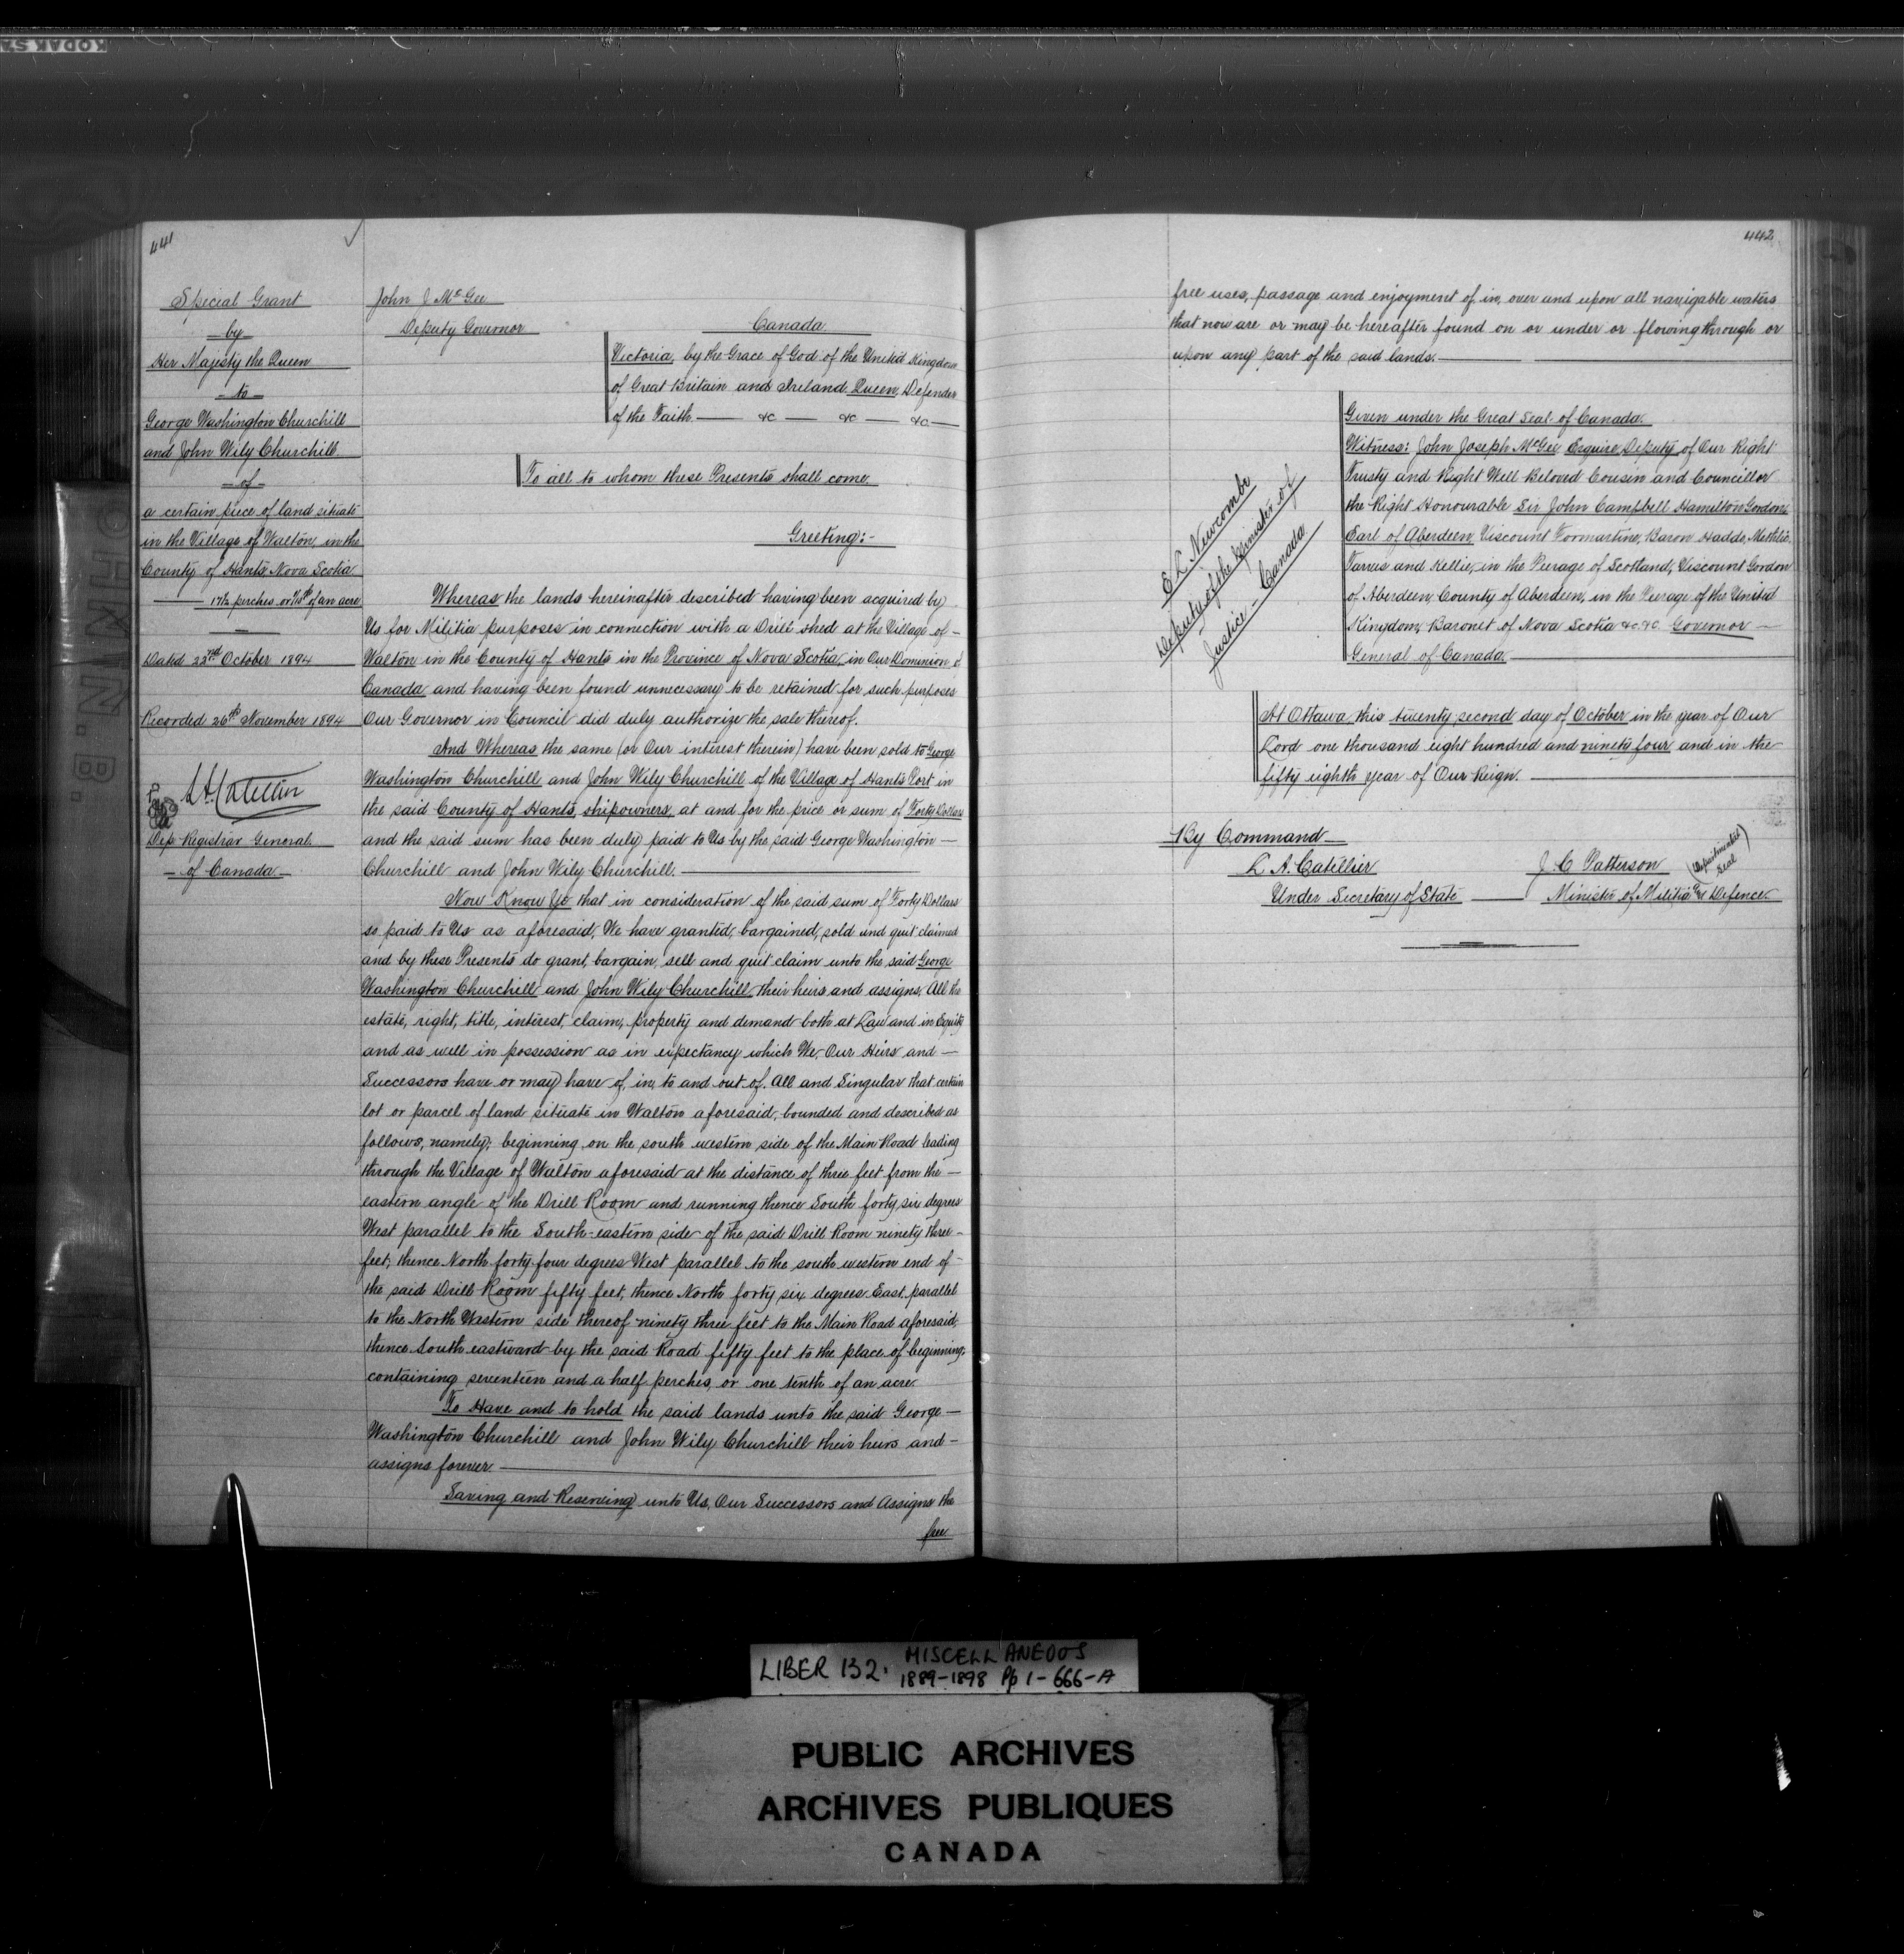 KODAK SA
441
Special Grant
by
Her Majesty the Queen
to
George Washington Churchill
and John Wily Churchill
of
a certain piece of land situate
in the Village of Walton, in the
County of Hants, Nova Scotia
17½ perches or 1/10th of an acre
Dated 22nd October 1894
Recorded 26th November 1894
L A Catellier
Dep. Registrar General
of Canada
John J McGee
Deputy Governor
Canada
Victoria, by the Grace of God of the United Kingdom
of Great Britain and Ireland Queen, Defender
of the Faith — &c — &c — &c —
To all to whom these Presents shall come
Greeting:-
Whereas the lands hereinafter described having been acquired by
Us for Militia purposes in connection with a Drill shed at the Village of —
Walton in the County of Hants in the Province of Nova Scotia in Our Dominion of
Canada and having been found unnecessary to be retained for such purposes
Our Governor in Council did duly authorize the sale thereof.
And Whereas the same (or Our interest therein) have been sold to George
Washington Churchill and John Wily Churchill of the Village of Hants Port in
the said County of Hants, shipowners, at and for the price or sum of Forty Dollars
and the said sum has been duly paid to Us by the said George Washington —
Churchill and John Wily Churchill. —
Now Know Ye that in consideration of the said sum of Forty Dollars
so paid to Us as aforesaid, We have granted, bargained, sold and quit claimed
and by these Presents do grant, bargain, sell and quit claim unto the said George
Washington Churchill and John Wily Churchill their heirs and assigns, All the
estate, right, title, interest, claim, property and demand both at Law and in Equity
and as well in possession as in expectancy which We, Our Heirs and —
Successors have or may have of, in, to and out of, All and Singular that certain
lot or parcel of land situate in Walton aforesaid, bounded and described as
follows, namely; beginning on the south western side of the Main Road leading
through the Village of Walton aforesaid at the distance of three feet from the —
eastern angle of the Drill Room and running thence South forty six degrees
West parallel to the South-eastern side of the said Drill Room ninety three -
feet; thence North forty four degrees West parallel to the south western end of -
the said Drill Room fifty feet, thence North forty six degrees East parallel
to the North Western side thereof ninety three feet to the Main Road aforesaid;
thence South eastward by the said Road fifty feet to the place of beginning,
containing seventeen and a half perches, or one tenth of an acre.
To Have and to hold the said lands unto the said George —
Washington Churchill and John Wily Churchill their heirs and -
assigns forever. —
Saving and Reserving unto Us, Our Successors and Assigns the
free
442
free uses, passage and enjoyment of, in, over and upon all navigable waters
that now are or may be hereafter found on or under or flowing through or
upon any part of the said lands. —
E L Newcombe
Deputy of the Minister of
Justice - Canada
Given under the Great Seal of Canada.
Witness: John Joseph McGee Esquire, Deputy of Our Right
Trusty and Right Well Beloved Cousin and Councillor
the Right Honourable Sir John Campbell Hamilton Gordon,
Earl of Aberdeen, Viscount Formartine, Baron Haddo, Methlic,
Tarves and Kellie, in the Peerage of Scotland, Viscount Gordon
of Aberdeen, County of Aberdeen, in the Peerage of the United
Kingdom, Baronet of Nova Scotia &c &c Governor —
General of Canada. —
At Ottawa, this twenty second day of October in the year of Our
Lord one thousand eight hundred and ninety four and in the
fifty eighth year of Our Reign. —
By Command
L A. Catellier
Under Secretary of State —
J C Patterson
Minister of Militia & Defence.
(Departmental
Seal)
LIBER 132. MISCELLANEOUS
1889-1898 Pp 1-666-A
PUBLIC ARCHIVES
ARCHIVES PUBLIQUES
CANADA